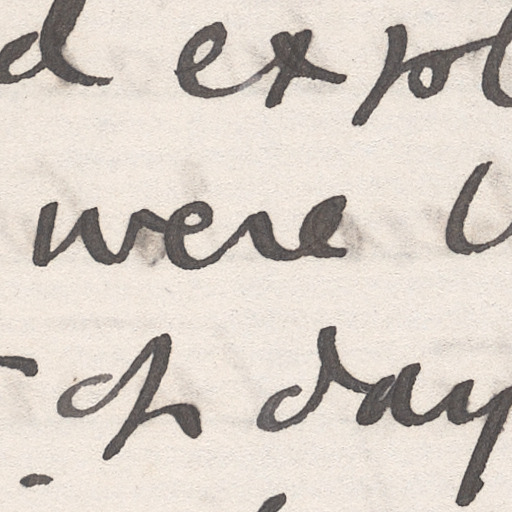 d expl
were
of day